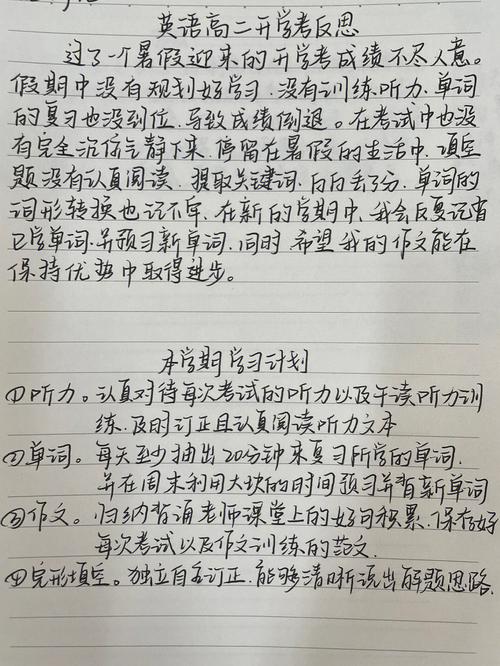 英语高二开学考反思
过了一个暑假迎来的开学考成绩不尽人意。
假期中没有规划好学习，没有训练听力，单词
的复习也没到位，导致成绩倒退。在考试中也没
有完全沉住气静下来，停留在暑假的生活中，填空
题没有认真阅读，提取关键词，白白丢了分，单词的
词形转换也记不牢，在新的学期中，我会反复记背
已学单词，并预习新单词，同时，希望我的作文能在
保持优势中取得进步。
本学期学习计划
①听力。认真对待每次考试的听力以及午读听力训
练，及时订正且认真阅读听力文本
②单词。每天至少抽出20分钟来复习所学的单词，
并在周末利用大块的时间预习并背新单词
③作文。归纳背诵老师课堂上的好句积累，保存好
每次考试以及作文训练的范文.
④完形填空。独立自主订正，能够清晰说出解题思路.